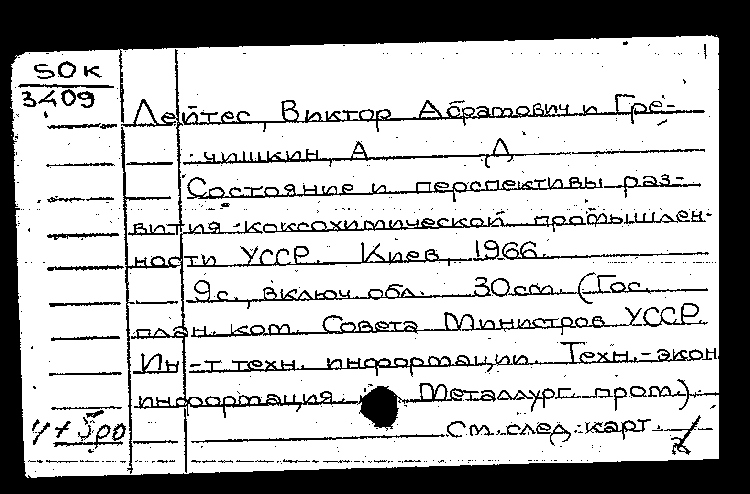 50к
3409
Лейтес, Виктор Абрамович и Гре-
чишкин, А Д
Состояние и перспективы раз-
вития коксохимической промышлен-
ности УССР. Киев, 1966.
9с., включ. обл. 30см. (Гос.
план. ком. Совета Министров УССР.
Ин-т техн. информации. Техн.-экон
информация. Металлург. пром.).
См. след. карт.